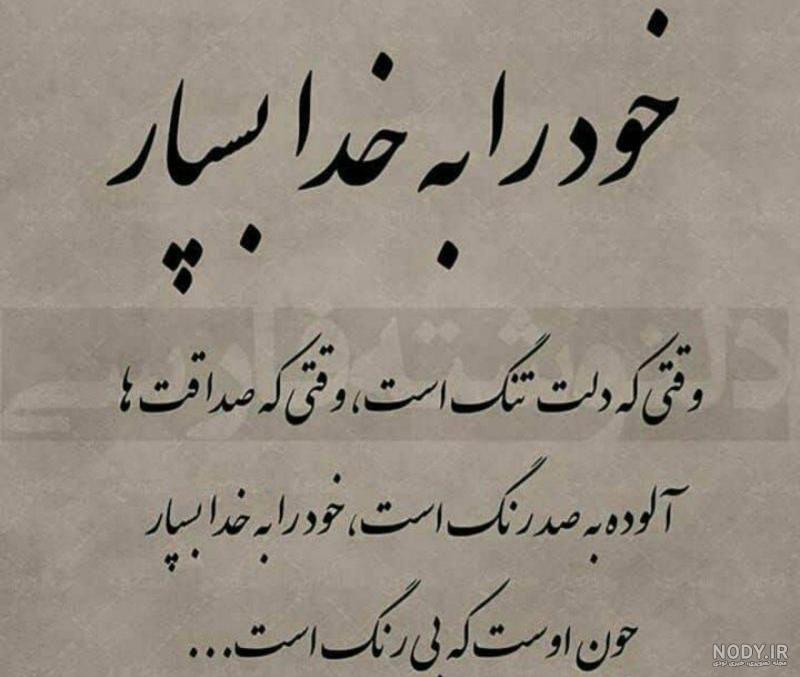 خود را به خدا بسپار
دلنوشته فارسی
وقتی که دلت تنگ است، وقتی که صداقت ها
آلوده به صد رنگ است، خود را به خدا بسپار
حون اوست که بی رنگ است...
NODY.IR
مجله تصویری، خبری نودی